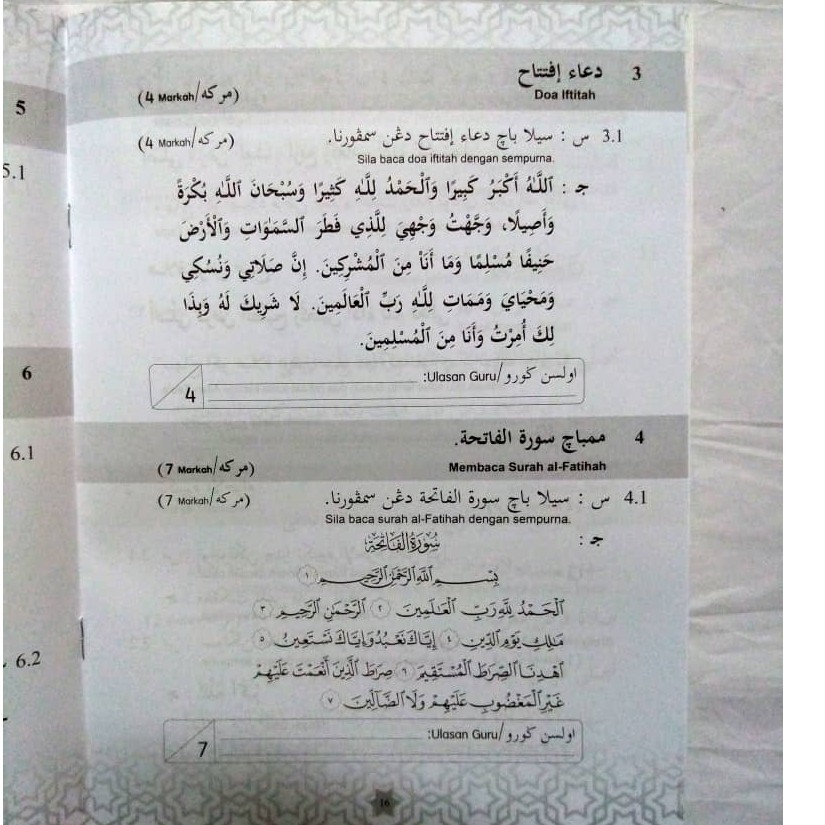 3 دعاء إفتتاح
Doa Iftitah
(مركه/Markah 4)
3.1 س : سيلا باچ دعاء إفتتاح دڠن سمڤورنا.
(مركه/Markah 4)
Sila baca doa iftitah dengan sempurna.
ج : ٱللَّٰهُ أَكْبَرُ كَبِيرًا وَٱلْحَمْدُ لِلَّٰهِ كَثِيرًا وَسُبْحَانَ ٱللَّٰهِ بُكْرَةً
وَأَصِيلًا، وَجَّهْتُ وَجْهِيَ لِلَّذِي فَطَرَ ٱلسَّمَٰوَاتِ وَٱلْأَرْضَ
حَنِيفًا مُسْلِمًا وَمَا أَنَا۠ مِنَ ٱلْمُشْرِكِينَ. إِنَّ صَلَاتِي وَنُسُكِي
وَمَحْيَايَ وَمَمَاتِ لِلَّٰهِ رَبِّ ٱلْعَالَمِينَ. لَا شَرِيكَ لَهُ وَبِذَا
لِكَ أُمِرْتُ وَأَنَا مِنَ ٱلْمُسْلِمِينَ.
اولسن ݢورو/Ulasan Guru:
4
4 ممباچ سورة الفاتحة.
Membaca Surah al-Fatihah
(مركه/Markah 7)
4.1 س : سيلا باچ سورة الفاتحة دڠن سمڤورنا.
(مركه/Markah 7)
Sila baca surah al-Fatihah dengan sempurna.
ج : سُورَةُ الفَاتِحَةِ
بِسْمِ اللَّهِ الرَّحْمَٰنِ الرَّحِيمِ ١
الْحَمْدُ لِلَّهِ رَبِّ الْعَالَمِينَ ٢ الرَّحْمَٰنِ الرَّحِيمِ ٣
مَالِكِ يَوْمِ الدِّينِ ٤ إِيَّاكَ نَعْبُدُ وَإِيَّاكَ نَسْتَعِينُ ٥
اهْدِنَا الصِّرَاطَ الْمُسْتَقِيمَ ٦ صِرَاطَ الَّذِينَ أَنْعَمْتَ عَلَيْهِمْ
غَيْرِ الْمَغْضُوبِ عَلَيْهِمْ وَلَا الضَّالِّينَ ٧
اولسن ݢورو/Ulasan Guru:
7
16
5
5.1
6
6.1
6.2